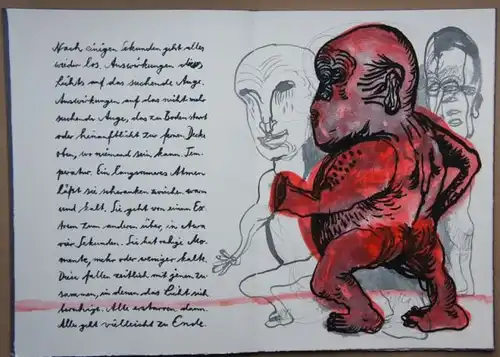 Nach einigen Sekunden geht alles
wieder los. Auswirkungen des
Lichts auf das suchende Auge.
Auswirkungen auf das nicht mehr
suchende Auge, das zu Boden starrt
oder hinaufblickt zur fernen Decke
oben, wo niemand sein kann. Tem-
peratur. Ein langsameres Atmen
läßt sie schwanken zwischen warm
und kalt. Sie geht von einem Ex-
trem zum anderen über, in etwa
vier Sekunden. Sie hat ruhige Mo-
mente, mehr oder weniger kalte.
Diese fallen zeitlich mit jenen zu-
sammen, in denen das Licht sich
beruhigt. Alle erstarren dann.
Alles geht vielleicht zu Ende.